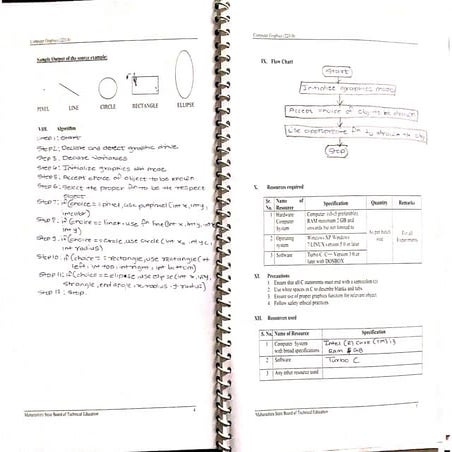 Computer Graphics (22318)
Sample Output of the source example:
PIXEL LINE CIRCLE RECTANGLE ELLIPSE
VIII. Algorithm
Step 1: Start
Step 2: Declare and detect graphic drive
Step 3: Declare variables
Step 4: Initialize graphics mode
Step 5: Accept choice of object to be drawn
Step 6: Select the proper fn to be respect
object
Step 7: if (choice == pixel, use putpixel (int x, int y,
int color)
Step 8: if (choice == line, use fn line (int x, int y, int
int y)
Step 9: if (choice == circle, use circle (int x, int y,
int radius)
Step 10: if (choice = rectangle, use rectangle (int
left, int top, int right, int bottom)
Step 11: if (choice == ellipse, use ellipse (int x, int y,
st angle, end angle, x radius, y radius)
Step 12: Stop.
Maharashtra State Board of Technical Education
Computer Graphics (22318)
IX. Flow Chart
Start
Initialize graphics mode
Accept choice of object to be drawn
Use appropriate fn to draw the obj
Stop
X. Resources required
Sr. No. Name of Resource Specification Quantity Remarks
1 Hardware: Computer System Computer (i3-i5 preferable), RAM minimum 2 GB and onwards but not limited to As per batch size For all Experiments
2 Operating system Windows XP/Windows 7/LINUX version 5.0 or later
3 Software Turbo C/C++ Version 3.0 or later with DOSBOX
XI Precautions
1 Ensure that all C statements must end with a semicolon (;)
2 Use white spaces in C to describe blanks and tabs
3 Ensure use of proper graphics function for relevant object.
4 Follow safety ethical practices
XII. Resources used
S. No. Name of Resource Specification
1 Computer System with broad specifications Intel (R) Core (TM) i3
RAM GB
2 Software Turbo C
3 Any other resource used
Maharashtra State Board of Technical Education